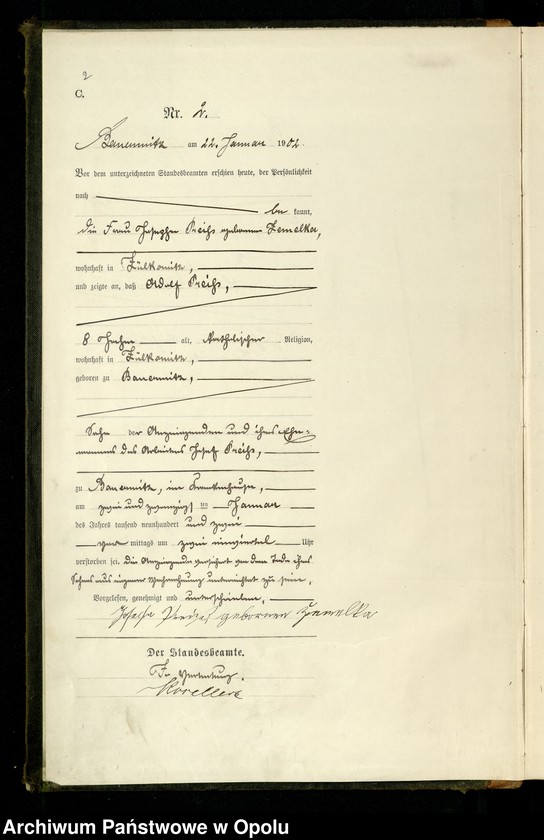 2
C.
Nr. 2.
Bauerwitz am 22. Januar 1902.
Vor dem unterzeichneten Standesbeamten erschien heute, der Persönlichkeit
nach
be kannt,
die Frau Josepha Preiß geborene Zemelka,
wohnhaft in Zülkowitz,
und zeigte an, daß Adolf Preiß,
8 Jahre alt, katholischer Religion,
wohnhaft in Zülkowitz,
geboren zu Bauerwitz,
Sohn der Anzeigenden und ihres Ehe-
mannes des Arbeiters Josef Preiß,
zu Bauerwitz, im Krankenhause,
am zwei und zwanzigsten Januar
des Jahres tausend neunhundert und zwei
vor mittags um zwei einviertel Uhr
verstorben sei. Die Anzeigende versichert von dem Tode ihres
Sohnes aus eigener Wahrnehmung unterrichtet zu sein.
Vorgelesen, genehmigt und unterschrieben.
Josefa geborenen Zemelka
Der Standesbeamte.
In Vertretung.
Archiwum Państwowe w Opolu